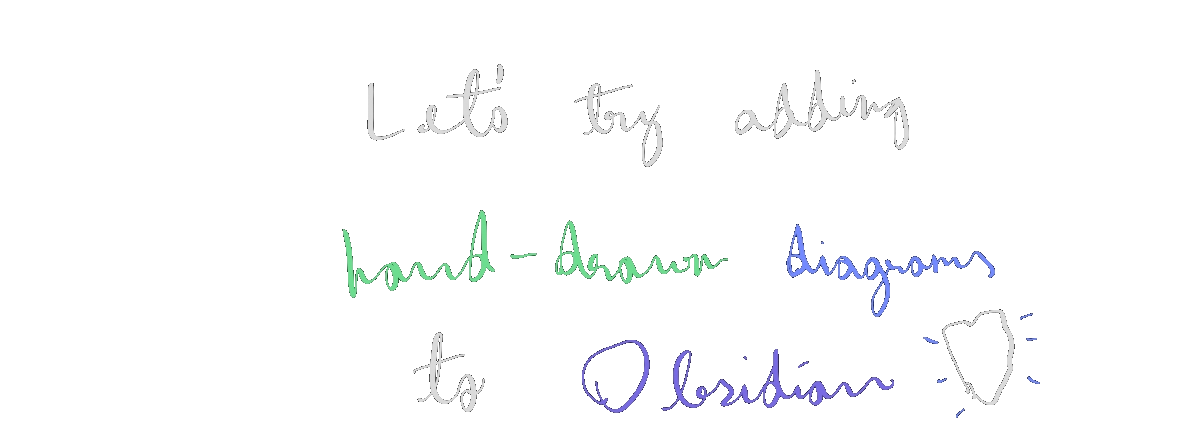 Let's try adding
hand-drawn diagrams
to Obsidian